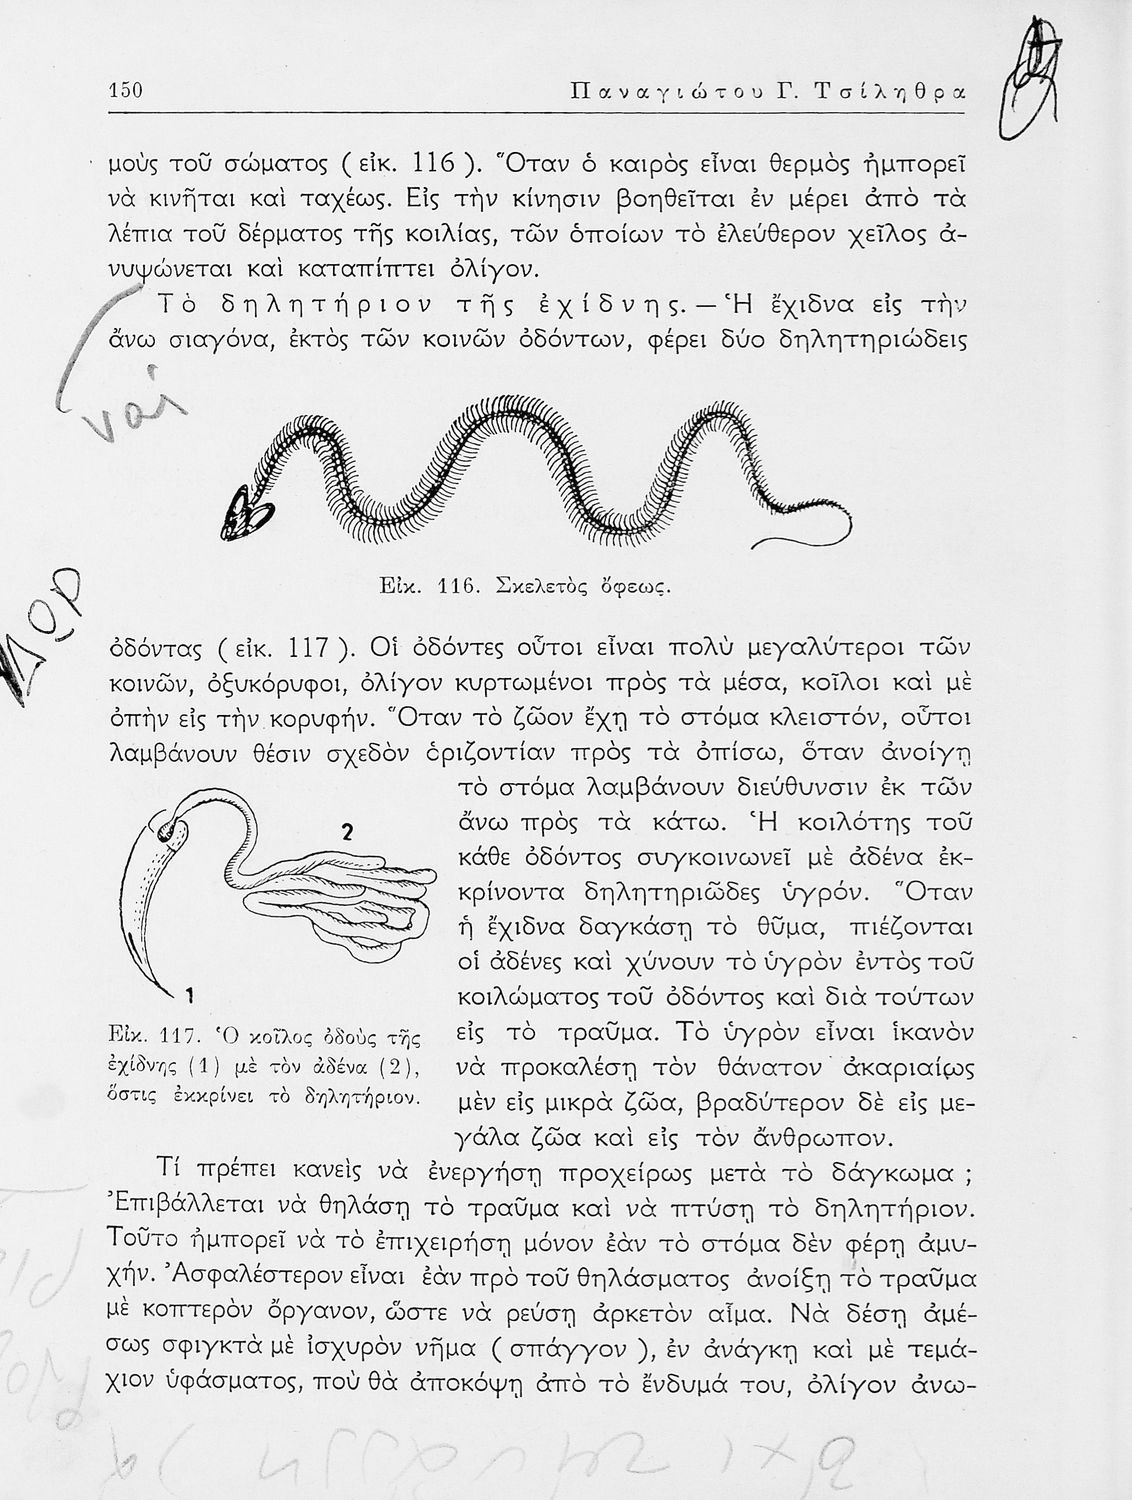 150
Παναγιώτου Γ. Τσίληθρα
μοὺς τοῦ σώματος ( εἰκ. 116 ). Ὅταν ὁ καιρὸς εἶναι θερμὸς ἠμπορεῖ
νὰ κινῆται καὶ ταχέως. Εἰς τὴν κίνησιν βοηθεῖται ἐν μέρει ἀπὸ τὰ
λέπια τοῦ δέρματος τῆς κοιλίας, τῶν ὁποίων τὸ ἐλεύθερον χεῖλος ἀ-
νυψώνεται καὶ καταπίπτει ὀλίγον.
Τὸ δηλητήριον τῆς ἐχίδνης. — Ἡ ἔχιδνα εἰς τὴν
ἄνω σιαγόνα, ἐκτὸς τῶν κοινῶν ὀδόντων, φέρει δύο δηλητηριώδεις
ναί
Εἰκ. 116. Σκελετὸς ὄφεως.
ΔΩΡ
ὀδόντας ( εἰκ. 117 ). Οἱ ὀδόντες οὗτοι εἶναι πολὺ μεγαλύτεροι τῶν
κοινῶν, ὀξυκόρυφοι, ὀλίγον κυρτωμένοι πρὸς τὰ μέσα, κοῖλοι καὶ μὲ
ὀπὴν εἰς τὴν κορυφήν. Ὅταν τὸ ζῶον ἔχῃ τὸ στόμα κλειστόν, οὗτοι
λαμβάνουν θέσιν σχεδὸν ὁριζοντίαν πρὸς τὰ ὀπίσω, ὅταν ἀνοίγῃ
τὸ στόμα λαμβάνουν διεύθυνσιν ἐκ τῶν
ἄνω πρὸς τὰ κάτω. Ἡ κοιλότης τοῦ
κάθε ὀδόντος συγκοινωνεῖ μὲ ἀδένα ἐκ-
κρίνοντα δηλητηριῶδες ὑγρόν. Ὅταν
ἡ ἔχιδνα δαγκάσῃ τὸ θῦμα, πιέζονται
οἱ ἀδένες καὶ χύνουν τὸ ὑγρὸν ἐντὸς τοῦ
κοιλώματος τοῦ ὀδόντος καὶ διὰ τούτων
εἰς τὸ τραῦμα. Τὸ ὑγρὸν εἶναι ἱκανὸν
νὰ προκαλέσῃ τὸν θάνατον ἀκαριαίως
μὲν εἰς μικρὰ ζῶα, βραδύτερον δὲ εἰς με-
γάλα ζῶα καὶ εἰς τὸν ἄνθρωπον.
2
1
Εἰκ. 117. Ὁ κοῖλος ὀδοὺς τῆς
ἐχίδνης (1) μὲ τὸν ἀδένα (2),
ὅστις ἐκκρίνει τὸ δηλητήριον.
Τί πρέπει κανεὶς νὰ ἐνεργήσῃ προχείρως μετὰ τὸ δάγκωμα ;
Ἐπιβάλλεται νὰ θηλάσῃ τὸ τραῦμα καὶ νὰ πτύσῃ τὸ δηλητήριον.
Τοῦτο ἠμπορεῖ νὰ τὸ ἐπιχειρήσῃ μόνον ἐὰν τὸ στόμα δὲν φέρῃ ἀμυ-
χήν. Ἀσφαλέστερον εἶναι ἐὰν πρὸ τοῦ θηλάσματος ἀνοίξῃ τὸ τραῦμα
μὲ κοπτερὸν ὄργανον, ὥστε νὰ ρεύσῃ ἀρκετὸν αἷμα. Νὰ δέσῃ ἀμέ-
σως σφιγκτὰ μὲ ἰσχυρὸν νῆμα ( σπάγγον ), ἐν ἀνάγκῃ καὶ μὲ τεμά-
χιον ὑφάσματος, ποὺ θὰ ἀποκόψῃ ἀπὸ τὸ ἔνδυμά του, ὀλίγον ἀνω-